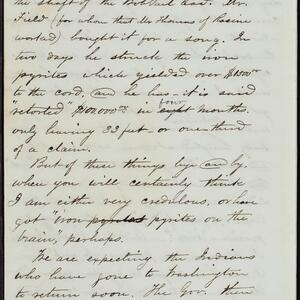 the shaft of the Bobtail East. Mr.
Field (for whom that Mr Thomas of Racine
worked) bought it for a song. In
two days he struck the iron
pyrites which yielded over $1500.00
to the cord, and he has - it is said
"retorted" $100,000.00 in four eight months,
only leaving 33 feet or one third
of a claim.
But of these things bye and by,
when you will certainly think
I am either very credulous, or have
got "iron pyrites pyrites on the
brain," perhaps.
We are expecting the Indians
who have gone to Washington
to return soon. The Gov. then